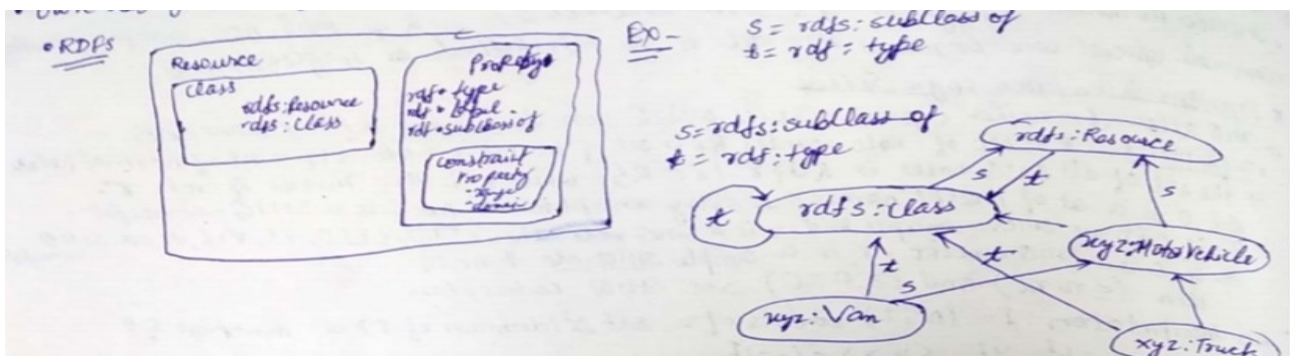 • RDFS
Resource
Class
rdfs:Resource
rdfs:Class
Property
rdf:type
rdf:subClassof
Constraint
Property
- range
- domain
Ex-
s = rdfs:subClass of
t = rdf:type
s = rdfs:subClass of
t = rdf:type
rdfs:Resource
s
t
s
t
rdfs:Class
xyz:MotorVehicle
t
s
t
xyz:Van
xyz:Truck